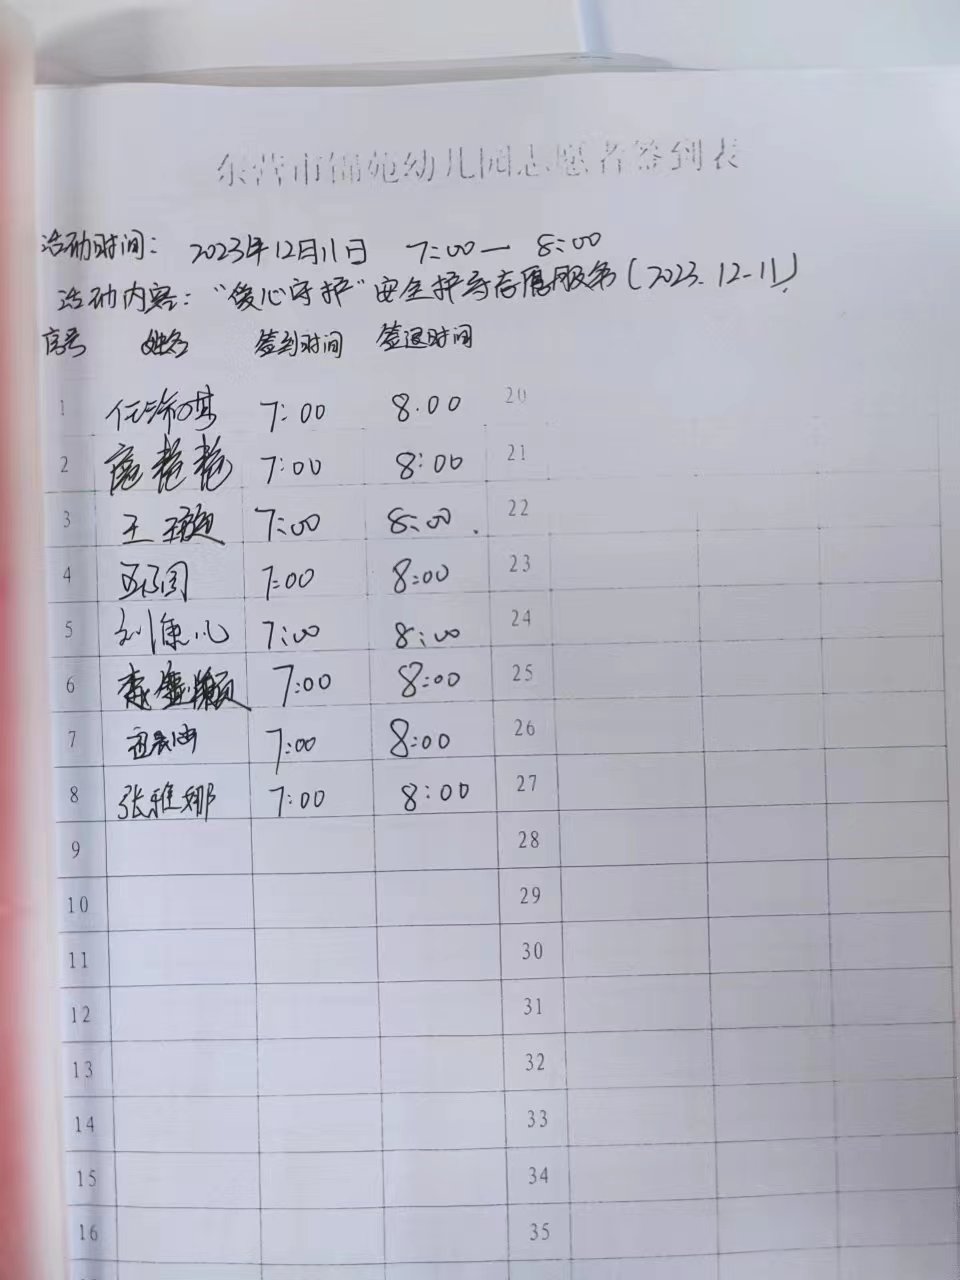 东营市锦苑幼儿园志愿者签到表
活动时间： 2023年12月11日 7:00— 8:00
活动内容：“爱心守护”安全护导志愿服务(2023.12-11)
序号 姓名 签到时间 签退时间
1 7:00 8.00 20
2 艳艳 7:00 8:00 21
3 王璇 7:00 8:00. 22
4 7:00 8:00 23
5 刘 7:00 8:00 24
6 7:00 8:00 25
7 7:00 8:00 26
8 张雅娜 7:00 8:00 27
9 28
10 29
11 30
12 31
13 32
14 33
15 34
16 35